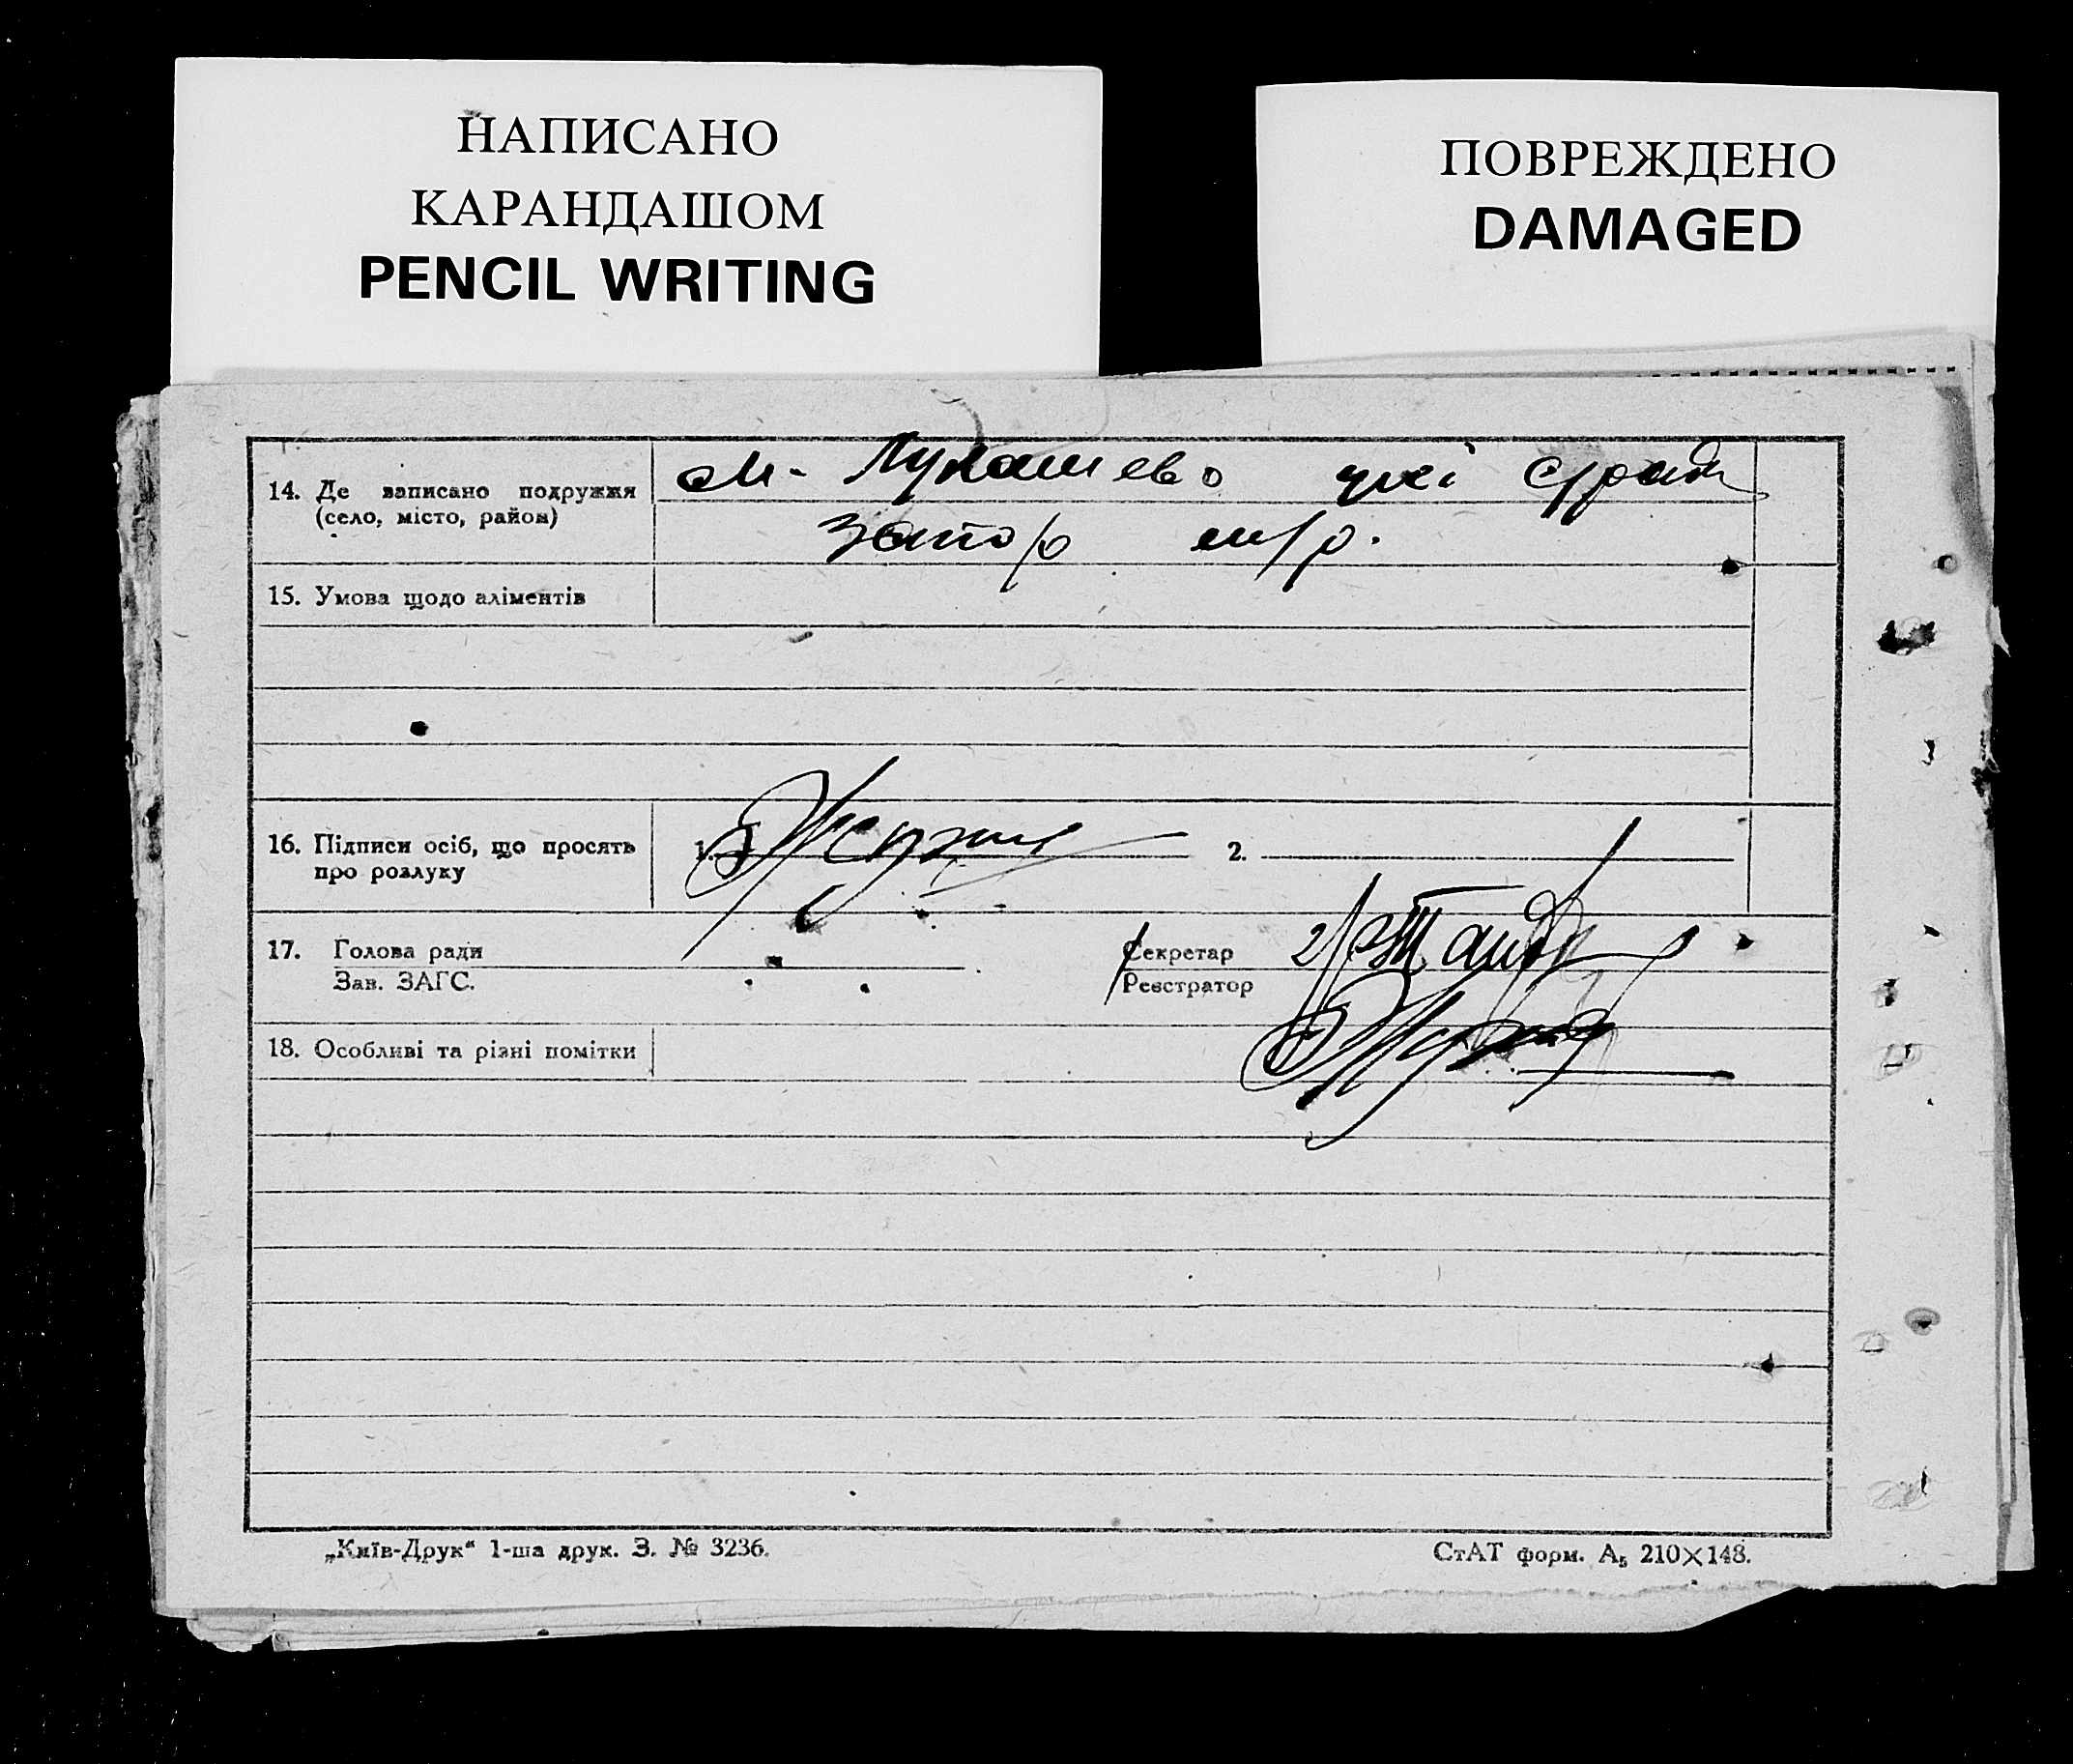 НАПИСАНО
КАРАНДАШОМ
PENCIL WRITING
ПОВРЕЖДЕНО
DAMAGED
14. Де записано подружжя
(село, місто, район)
Лукашево
15. Умова щодо аліментів
16. Підписи осіб, що просять
про розлуку
1.
2.
17. Голова ради
Зав. ЗАГС.
Секретар
Реєстратор
18. Особливі та різні помітки
„Київ-Друк“ 1-ша друк. З. № 3236.
СтАТ форм. А₅ 210×148.